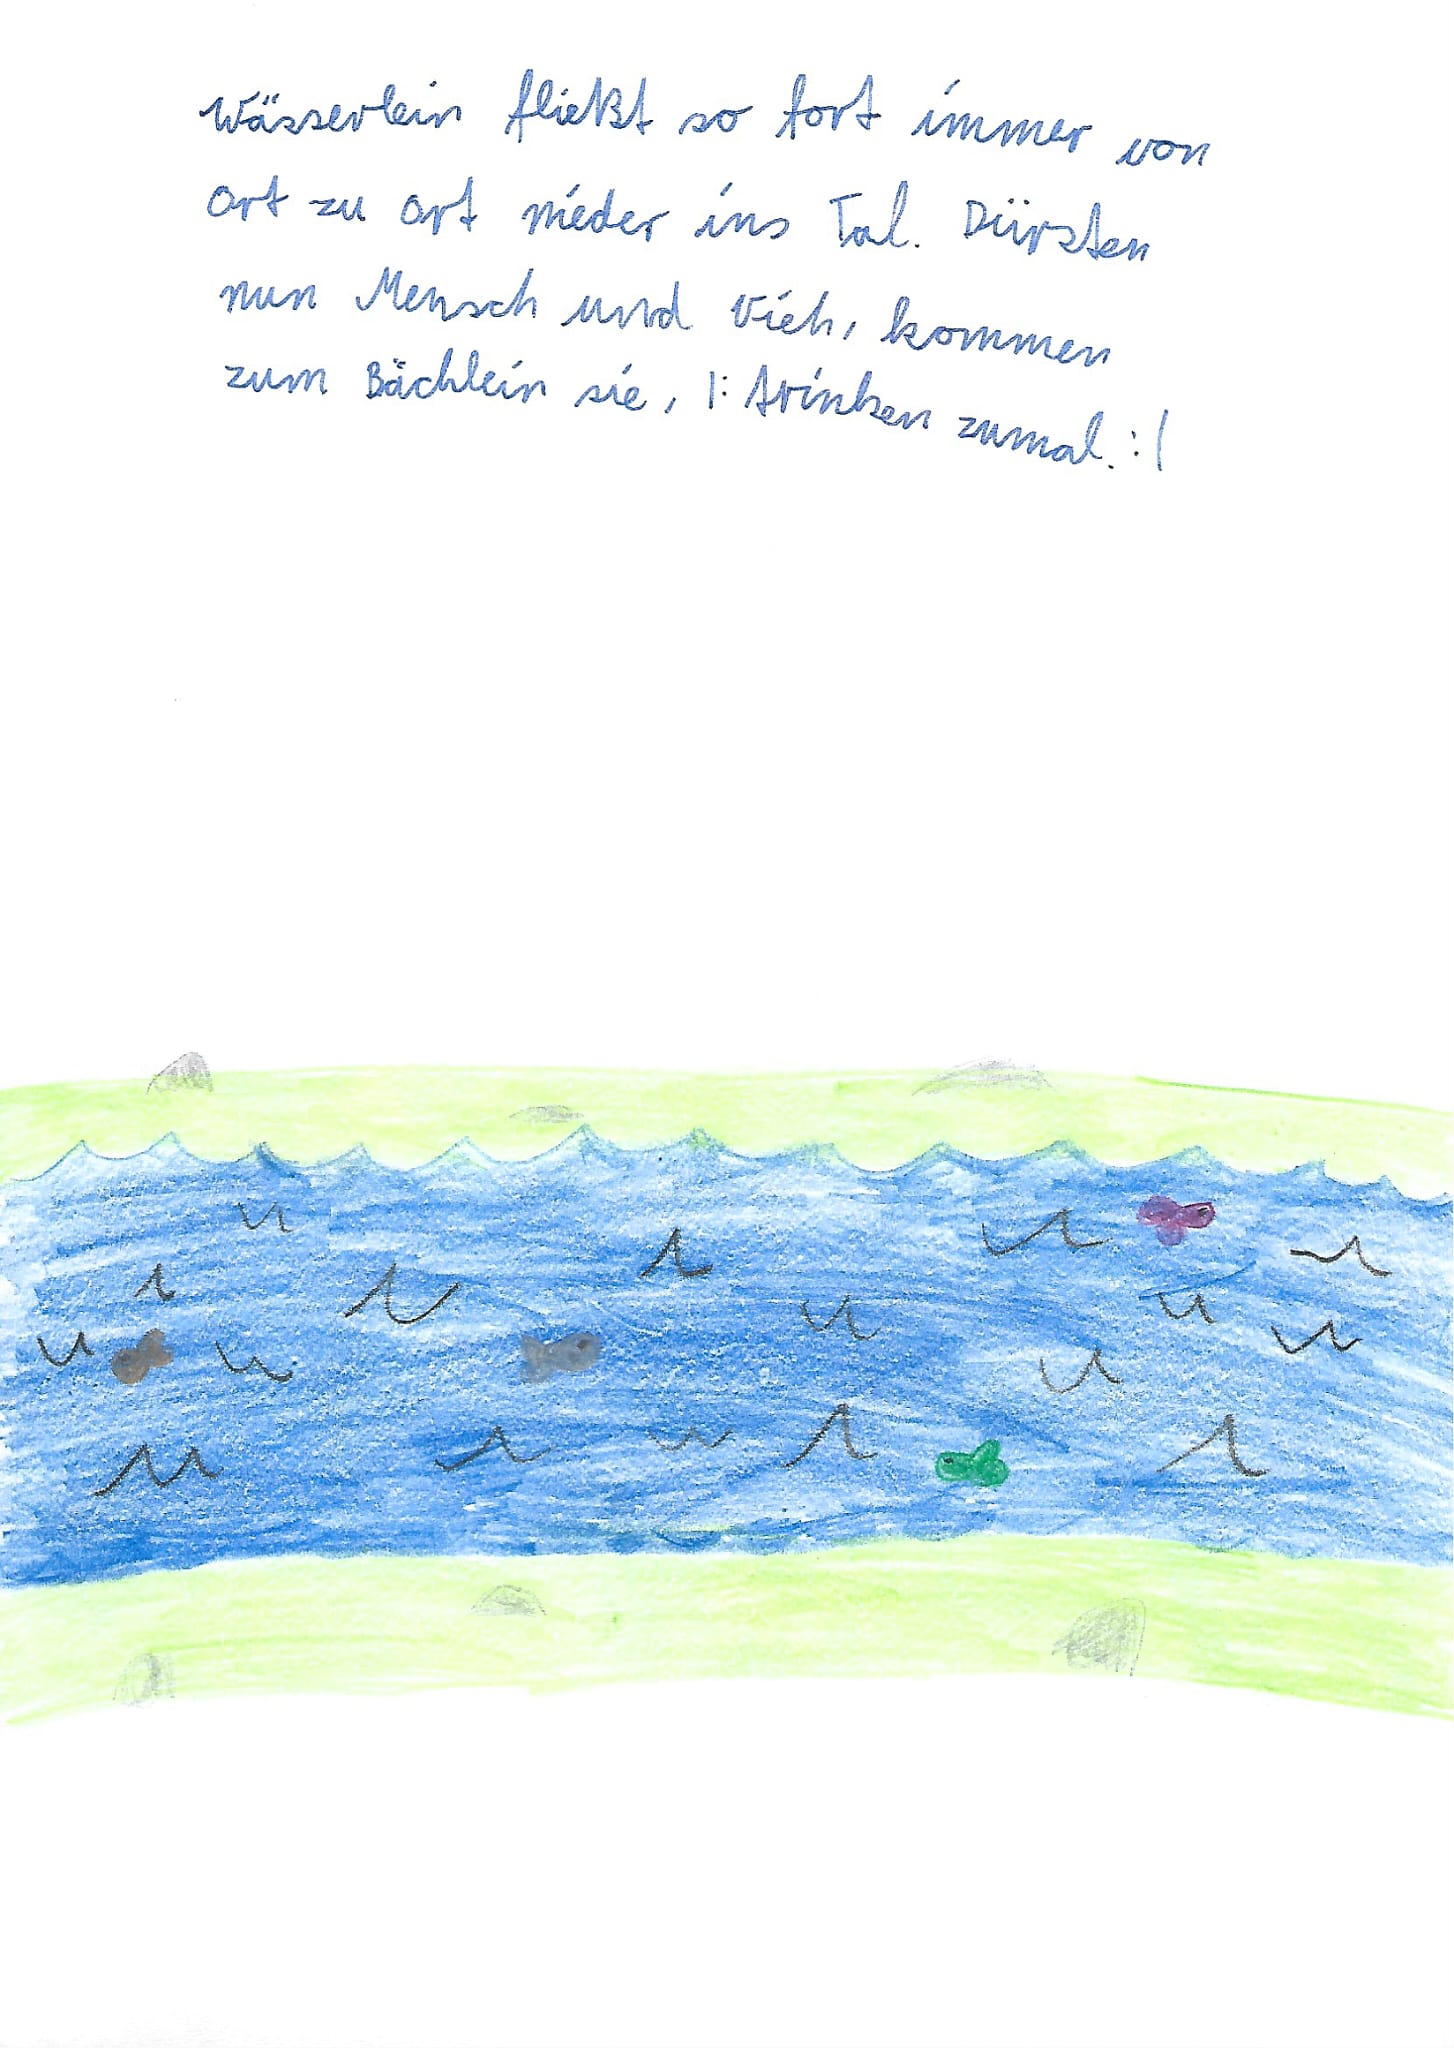 Wässerlein fließt so fort immer von
Ort zu Ort nieder ins Tal. Dürsten
nun Mensch und Vieh, kommen
zum Bächlein sie, |: trinken zumal. :|